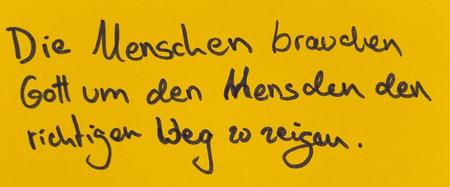 Die Menschen brauchen
Gott um den Menschen den
richtigen Weg zu zeigen.